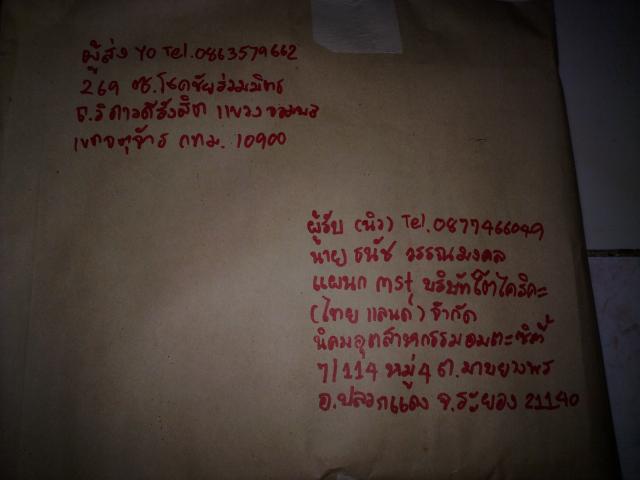 ผู้ส่ง YO Tel.0863579662
269 ซ.โชคชัยร่วมมิตร
ถ.วิภาวดีรังสิต แขวงจอมพล
เขตจตุจักร กทม. 10900
ผู้รับ (นิว) Tel.0877466049
นาย ธนัช วรรณมงคล
แผนก mst บริษัทโตไคริคะ
(ไทยแลนด์) จำกัด
นิคมอุตสาหกรรมอมตะซิตี้
7/114 หมู่4 ต.มาบยางพร
อ.ปลวกแดง จ.ระยอง 21140